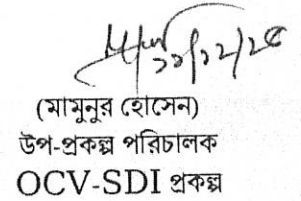 (মামুনুর হোসেন)
উপ-প্রকল্প পরিচালক
OCV-SDI প্রকল্প